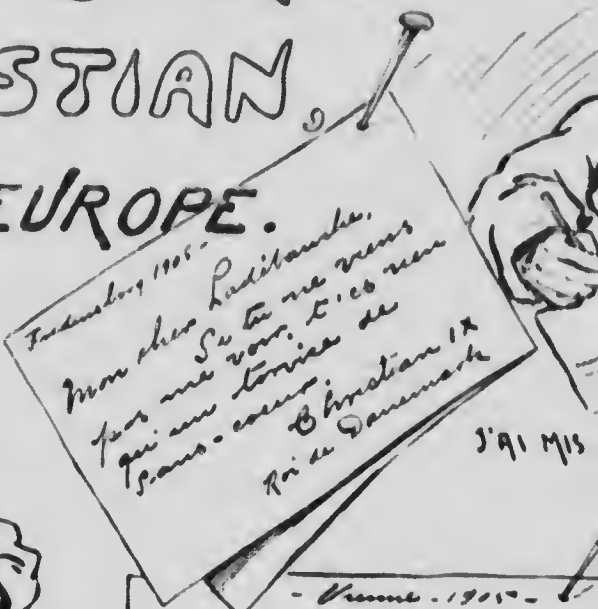 STIAN,
EUROPE.
Fredensborg 1905-
Mon cher Ladébauche,
Si tu ne viens
pas me voir, t'es rien
qu'un torvisse de
sans-coeur.
Christian IX
Roi de Danemark
J'AI MIS
- Vienne - 1905 -